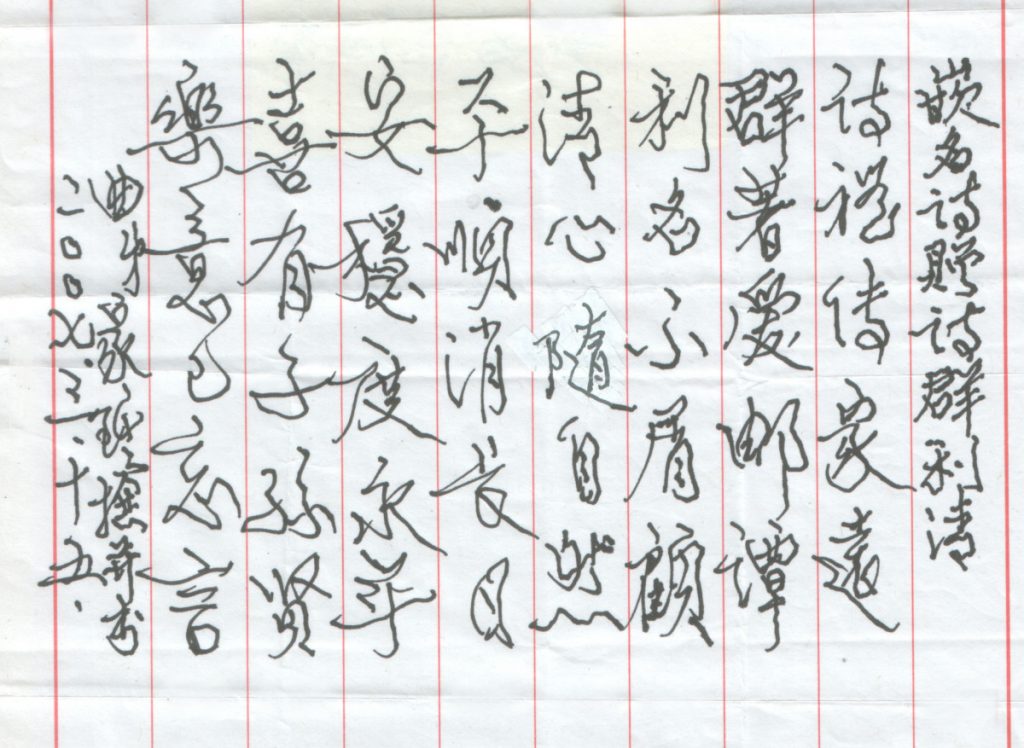 嵌名诗赠诗群利清
诗礼传家远
群著爱邮谭
利名不屑顾
清心随自然
平顺消长日
安稳度永年
喜有子孙贤
乐意已忘言
曲中家 撰并书
二00七.三.十五.